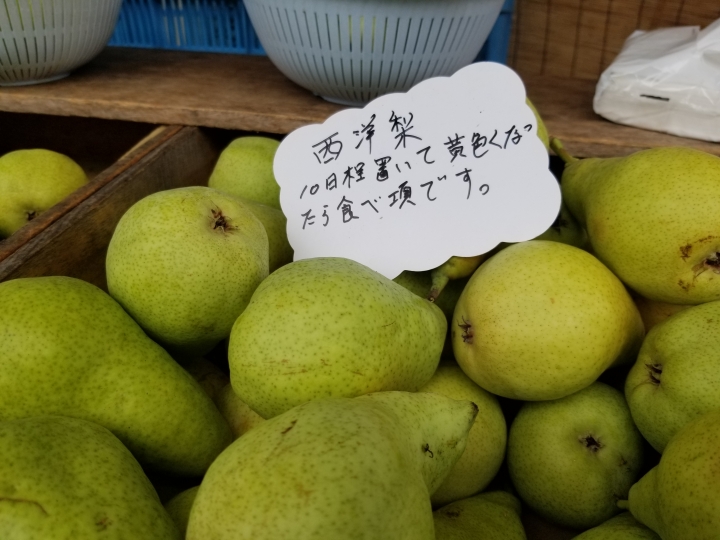 西洋梨
10日程置いて黄色くなっ
たら食べ頃です。